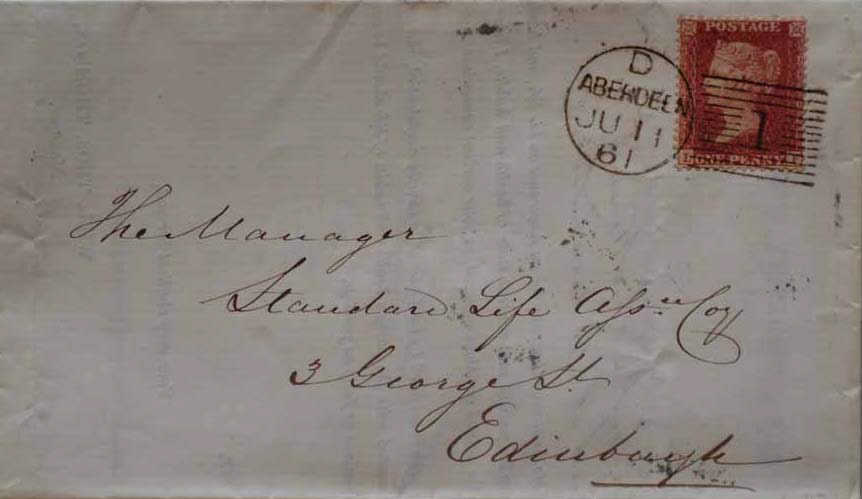 POSTAGE
ONE PENNY
D
ABERDEEN
JU 11
61
1
The Manager
Standard Life Assce Coy
3 George St.
Edinburgh